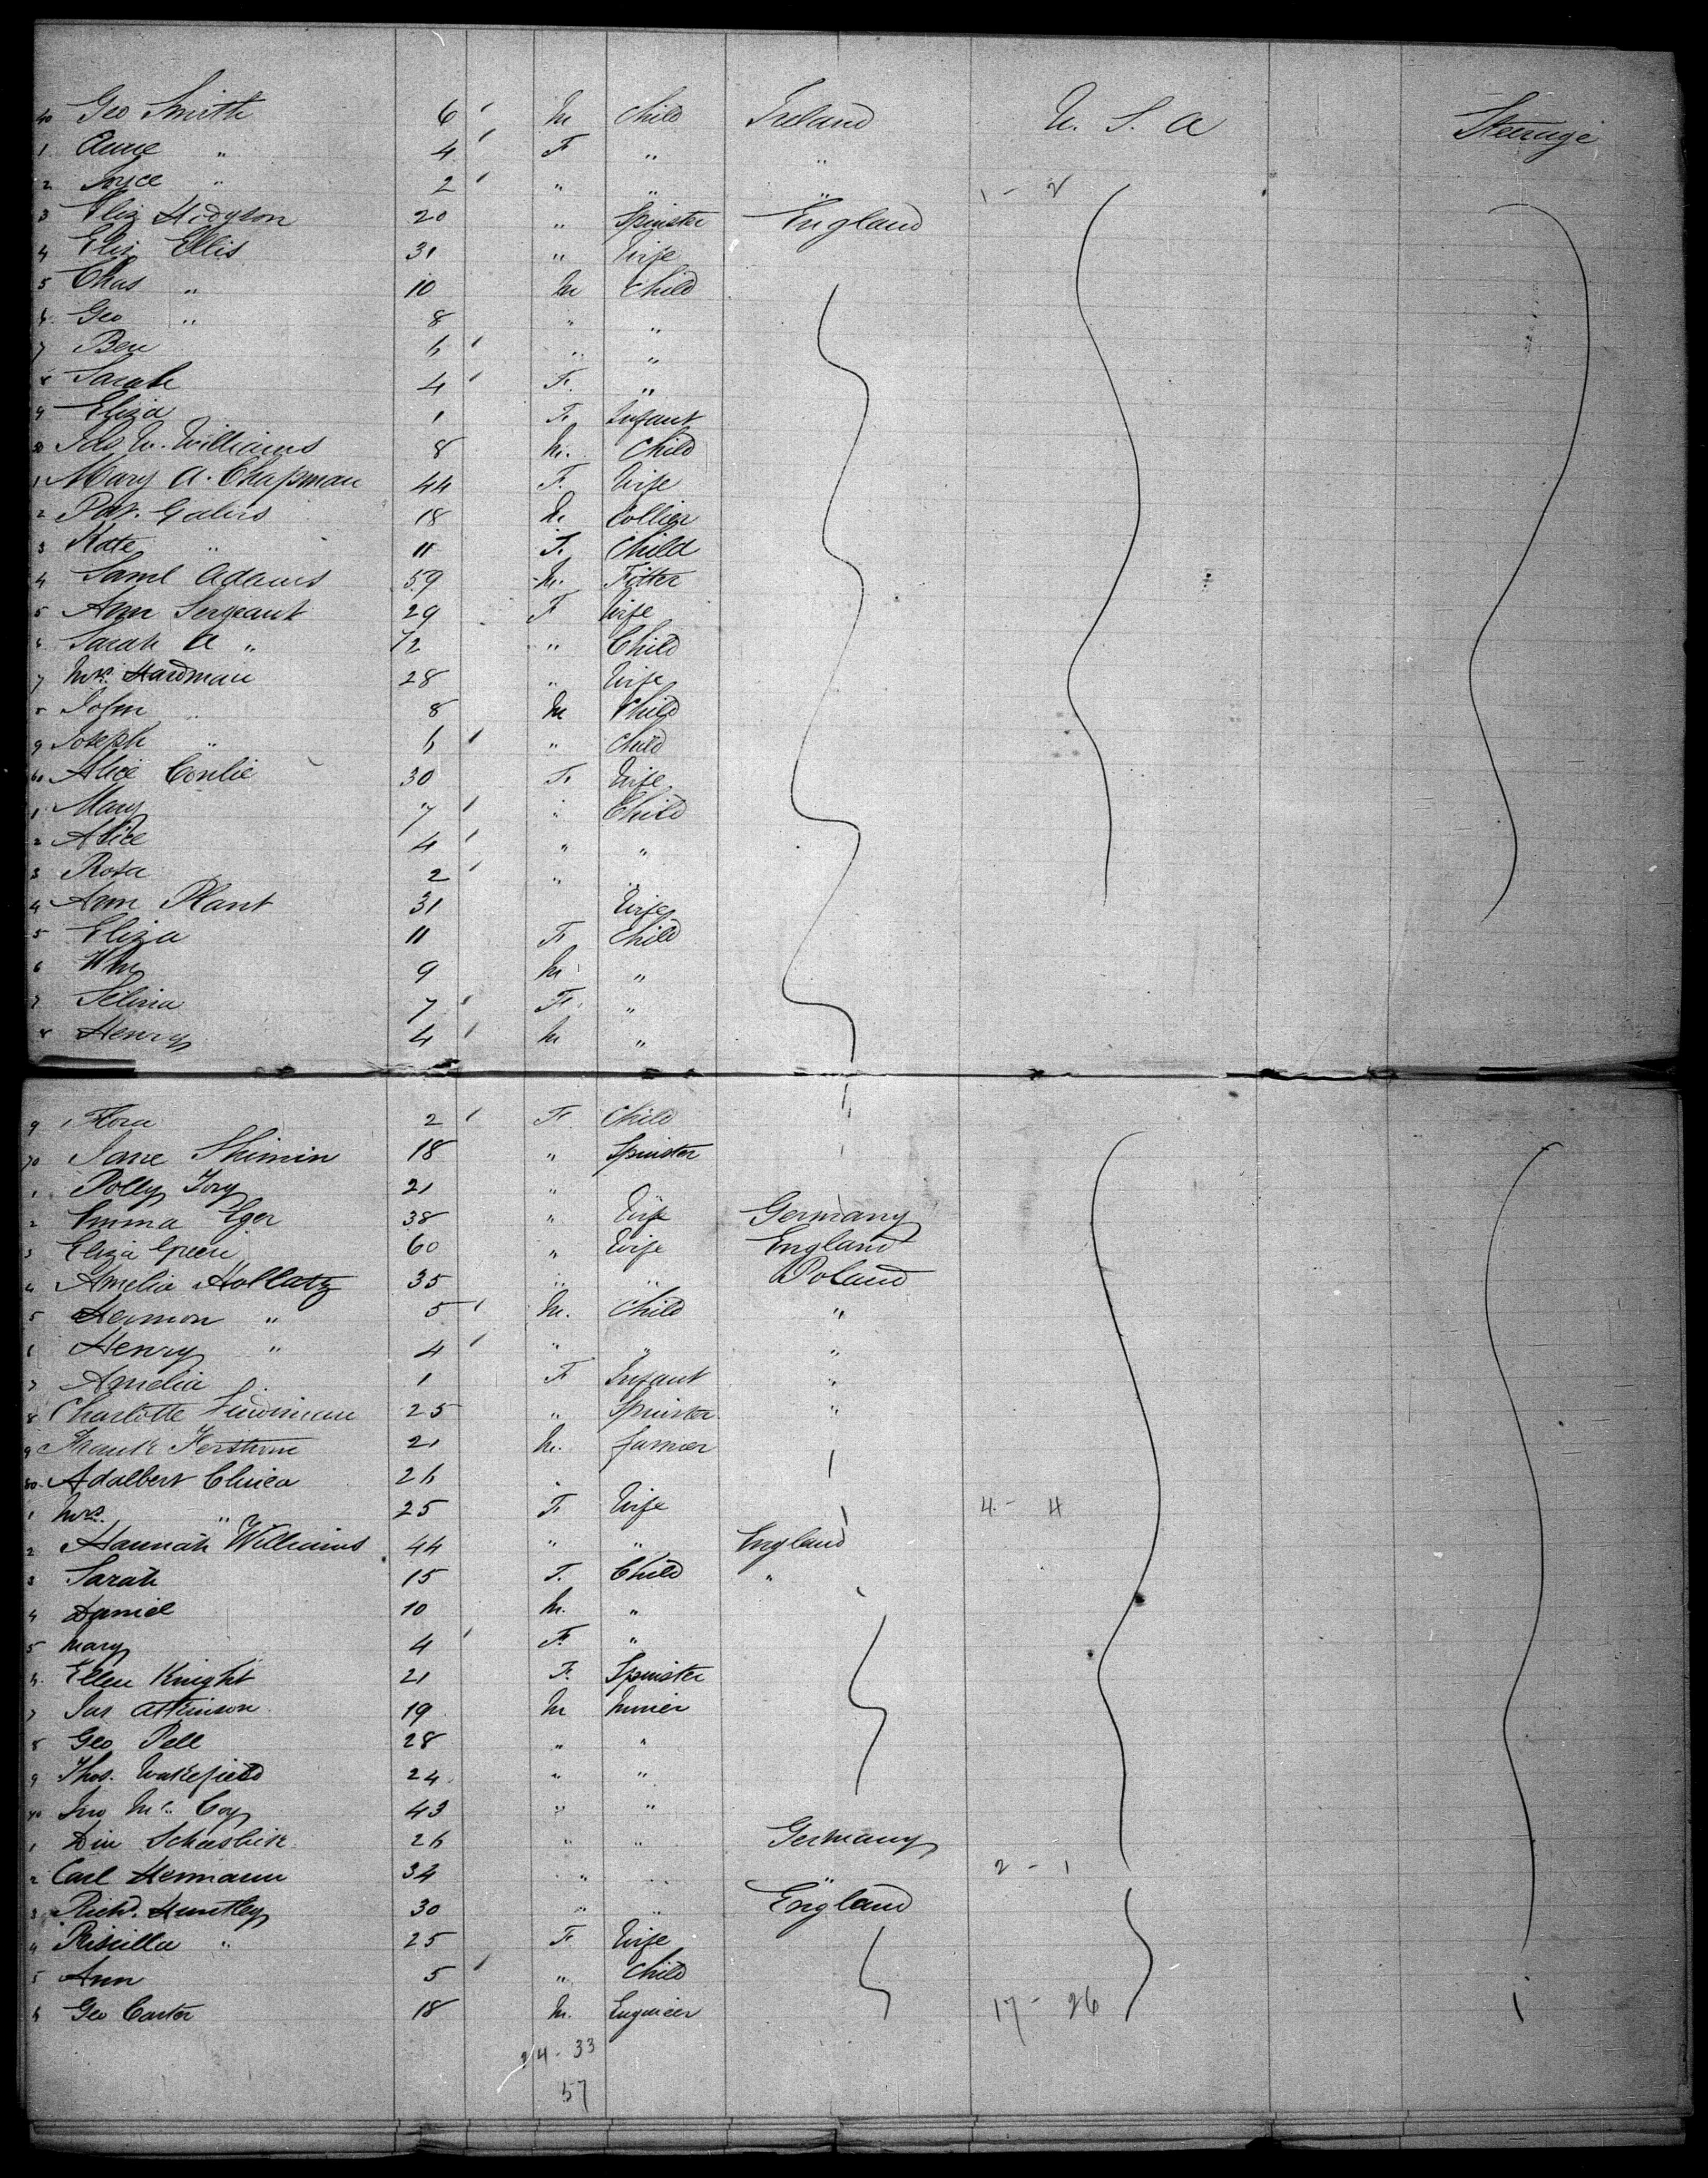 40 Geo Smith 6 ' M Child Ireland U. S. A Steerage
1 Annie " 4 ' F " "
2 " 2 ' " " " 1 - 2
3 Eliz Hodgson 20 " Spinster England
4 Eliz Ellis 31 " Wife
5 Chas " 10 M Child
6 Geo " 8 " "
7 Ben 6 ' " "
8 Sarah 4 ' F. "
9 Eliza 1 F. Infant
50 W. Williams 8 M. Child
1 Mary A. Chapman 44 F. Wife
2 Pat. 18 M Collier
3 Kate " 11 F. Child
4 Saml Adams 59 M. Fitter
5 Ann Sergeant 29 F Wife
6 Sarah A " /2 " Child
7 Mrs. Hardman 28 " Wife
8 John " 8 M Child
9 Joseph " 6 ' " Child
60 Alice 30 F. Wife
1 Mary 7 ' " Child
2 Alice 4 ' " "
3 Rosa 2 ' " "
4 Ann Plant 31 Wife
5 Eliza 11 F. Child
6 Wm 9 M. "
7 Selina 7 ' F. "
8 Henry 4 ' M "
9 Flora 2 ' F. Child
70 Jane Shimin 18 " Spinster
1 Polly 21 "
2 Emma Eger 38 " Wife Germany
3 Eliza Green 60 " Wife England
4 Amelia Hollatz 35 " " Poland
5 Hermon " 5 ' M. Child "
6 Henry " 4 ' " " "
7 Amelia " 1 F Infant "
8 Charlotte 25 " Spinster "
9 Frank 21 M. farmer
80 Adalbert 26 "
1 Mrs. " 25 F. Wife 4 - 4
2 Hannah Williams 44 " " England
3 Sarah 15 F. Child "
4 Daniel 10 M. "
5 Mary 4 ' F. "
6. Ellen Knight 21 F. Spinster
7 Jas Attkinson 19 M Miner
8 Geo Pell 28 " "
9 Thos. Wakefield 24 " "
90 Jno Mc. Coy 43 " "
1 26 " " Germany
2 Carl Hermann 34 " " " 2 - 1
3 Richd. Huntley 30 " " England
4 Priscilla " 25 F Wife
5 Ann 5 ' " Child
6 Geo Carter 18 M. Engineer 17 - 26
24 - 33
57